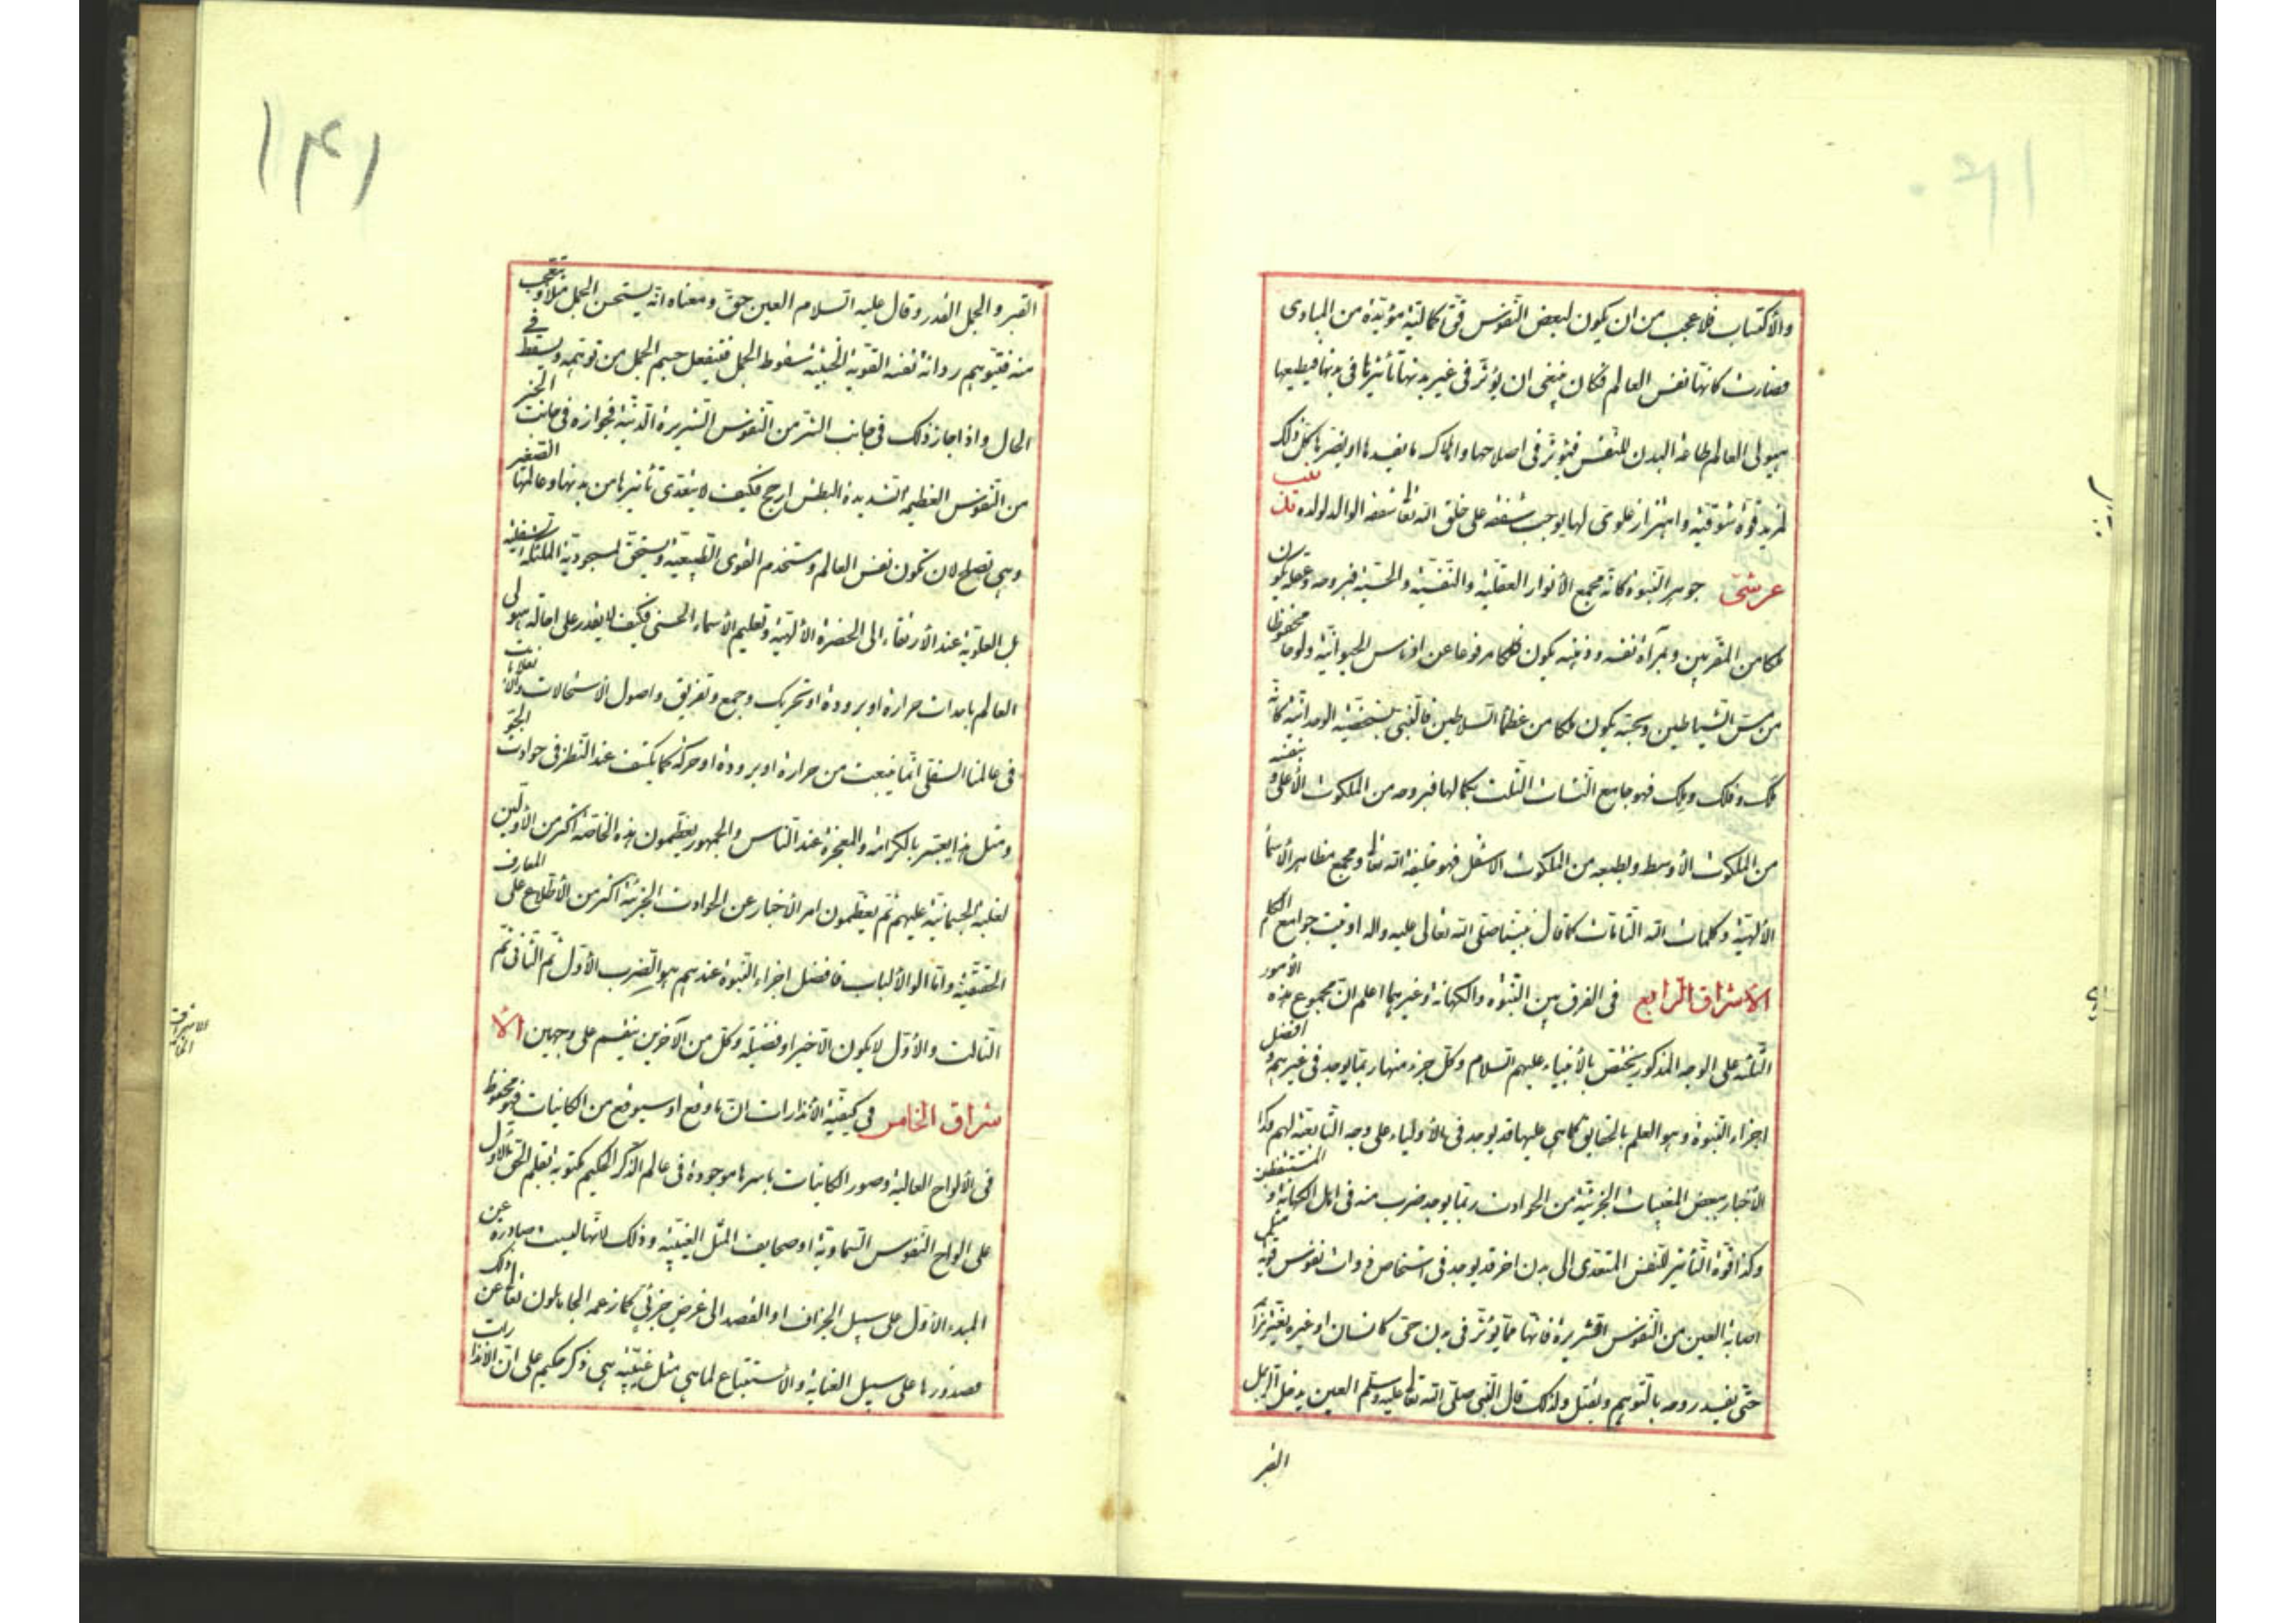 والاكتساب فلا عجب من ان يكون لبعض النفوس قوة كمالية مؤيدة من المبادى
فصارت كانها نفس العالم فكان ينبغى ان يؤثر فى غير بدنها تأثيرها فى بدنها فيطيعها
هيولى العالم طاعة البدن للنفس فيؤثر فى اصلاحها واهلاك ما يفسدها او يضرها كل ذلك
لمزيد قوة شوقية واهتزاز علوى لها يوجب شفقة على خلق الله تعا شفقة الوالد لولده
عرشى جوهر النبوة كانه مجمع الانوار العقلية والنفسية والحسية فبروحه وعقله يكون
ملكا من المقربين وبمرآة نفسه وذهنه يكون فلكا مرفوعا عن ادناس الحيوانية ولوحا محفوظا
من مس الشياطين وبحسه يكون ملكا من عظماء السلاطين فالنبى بشخصيته الوحدانية كانه
ملك وفلك وملك فهو جامع النشات الثلث بكمالها فبروحه من الملكوت الأعلى وبنفسه
من الملكوت الأوسط وبطبعه من الملكوت الاسفل فهو خليفة الله تعا ومجمع مظاهر الأسماء
الألهية وكلمات الله التامات كما قال نبينا صلى الله تعالى عليه واله اوتيت جوامع الكلم
الاشراق الرابع فى الفرق بين النبوة والكهانة وغيرهما اعلم ان مجموع هذه الأمور
الثلثة على الوجه المذكور يختص بالأنبياء عليهم السلام وكل جزء منها ربما يوجد فى غيرهم وافضل
اجزاء النبوة وهو العلم بالحقايق كما هى عليها قد يوجد فى الأولياء على وجه التابعة لهم وكذا
الأخبار ببعض المغيبات الجزئية من الحوادث ربما يوجد ضرب منه فى اهل الكهانة و المستنطقين
وكذا قوة التأثير للنفس المتعدى الى بدن اخر قد يوجد فى اشخاص ذوات نفوس قوية مثل
اصابة العين من النفوس الشريرة فانها مما يؤثر فى بدن حتى كانسان او غيره
حتى يفسد روحه بالتوهم ويقتل ولذلك قال النبى صلى الله تعا عليه وسلم العين يدخل الرجل
القبر
١٤١
القبر والجمل القدر وقال عليه السلام العين حق ومعناه انه يستحسن الجمل مثلا ويتعجب
منه فيتوهم رداءة نفسه القوية الخبيثة سقوط الجمل فينفعل جسم الجمل من توهمه ويسقط فى
الحال واذا جاز ذلك فى جانب الشر من النفوس الشريرة الدنية فجوازه فى جانب الخير
من النفوس العظيمة الشديدة البطش ارجح فكيف لا يتعدى تأثيرها من بدنها وعالمها الصغير
وهى تصلح لان تكون نفس العالم وتستخدم القوى الطبيعية ويستحق لمسجودية الملئكة السفلية
بل العلوية عند الأرتقاء الى الحضرة الألهية وتعليم الأسماء الحسنى فكيف لا يقدر على احالة هيولى
العالم باحداث حرارة او برودة او تحريك وجمع وتفريق واصول الاستحالات والانقلابات
فى عالمنا السفلى انما ينبعث من حرارة او برودة او حركة كما يكشف عند النظر فى حوادث الجو
ومثل هذا يعتبر بالكرامة والمعجزة عند الناس والجمهور يعظمون هذه الخاصة اكثر من الأوليين
لغلبة الجسمانية عليهم ثم يعظمون امر الأخبار عن الحوادث الجزئية اكثر من الأطلاع على المعارف
الحقيقية واما الوا الألباب فافضل اجزاء النبوة عندهم هو الضرب الأول ثم الثانى ثم
الثالث والأول لا يكون الا خيرا وفضيلة وكل من الآخرين ينقسم على وجهين الا
شراق الخامس فى كيفية الأنذارات ان ما وقع او سيوقع من الكاينات فهو محفوظ
فى الألواح العالية وصور الكاينات باسرها موجودة فى عالم الذكر الحكيم مكتوبة بقلم الحق الأول
على الواح النفوس السماوية او صحايف المثل الغيبية وذلك لانها ليست صادرة عن
المبدء الأول على سبيل الجزاف او القصد الى غرض جزئى كما زعمه الجاهلون تعالى عن ذلك
فصدورها على سبيل العناية والأستتباع لما هى مثل غيبية هى ذكر حكيم على ان الانذارات
الاشراق
الخامس